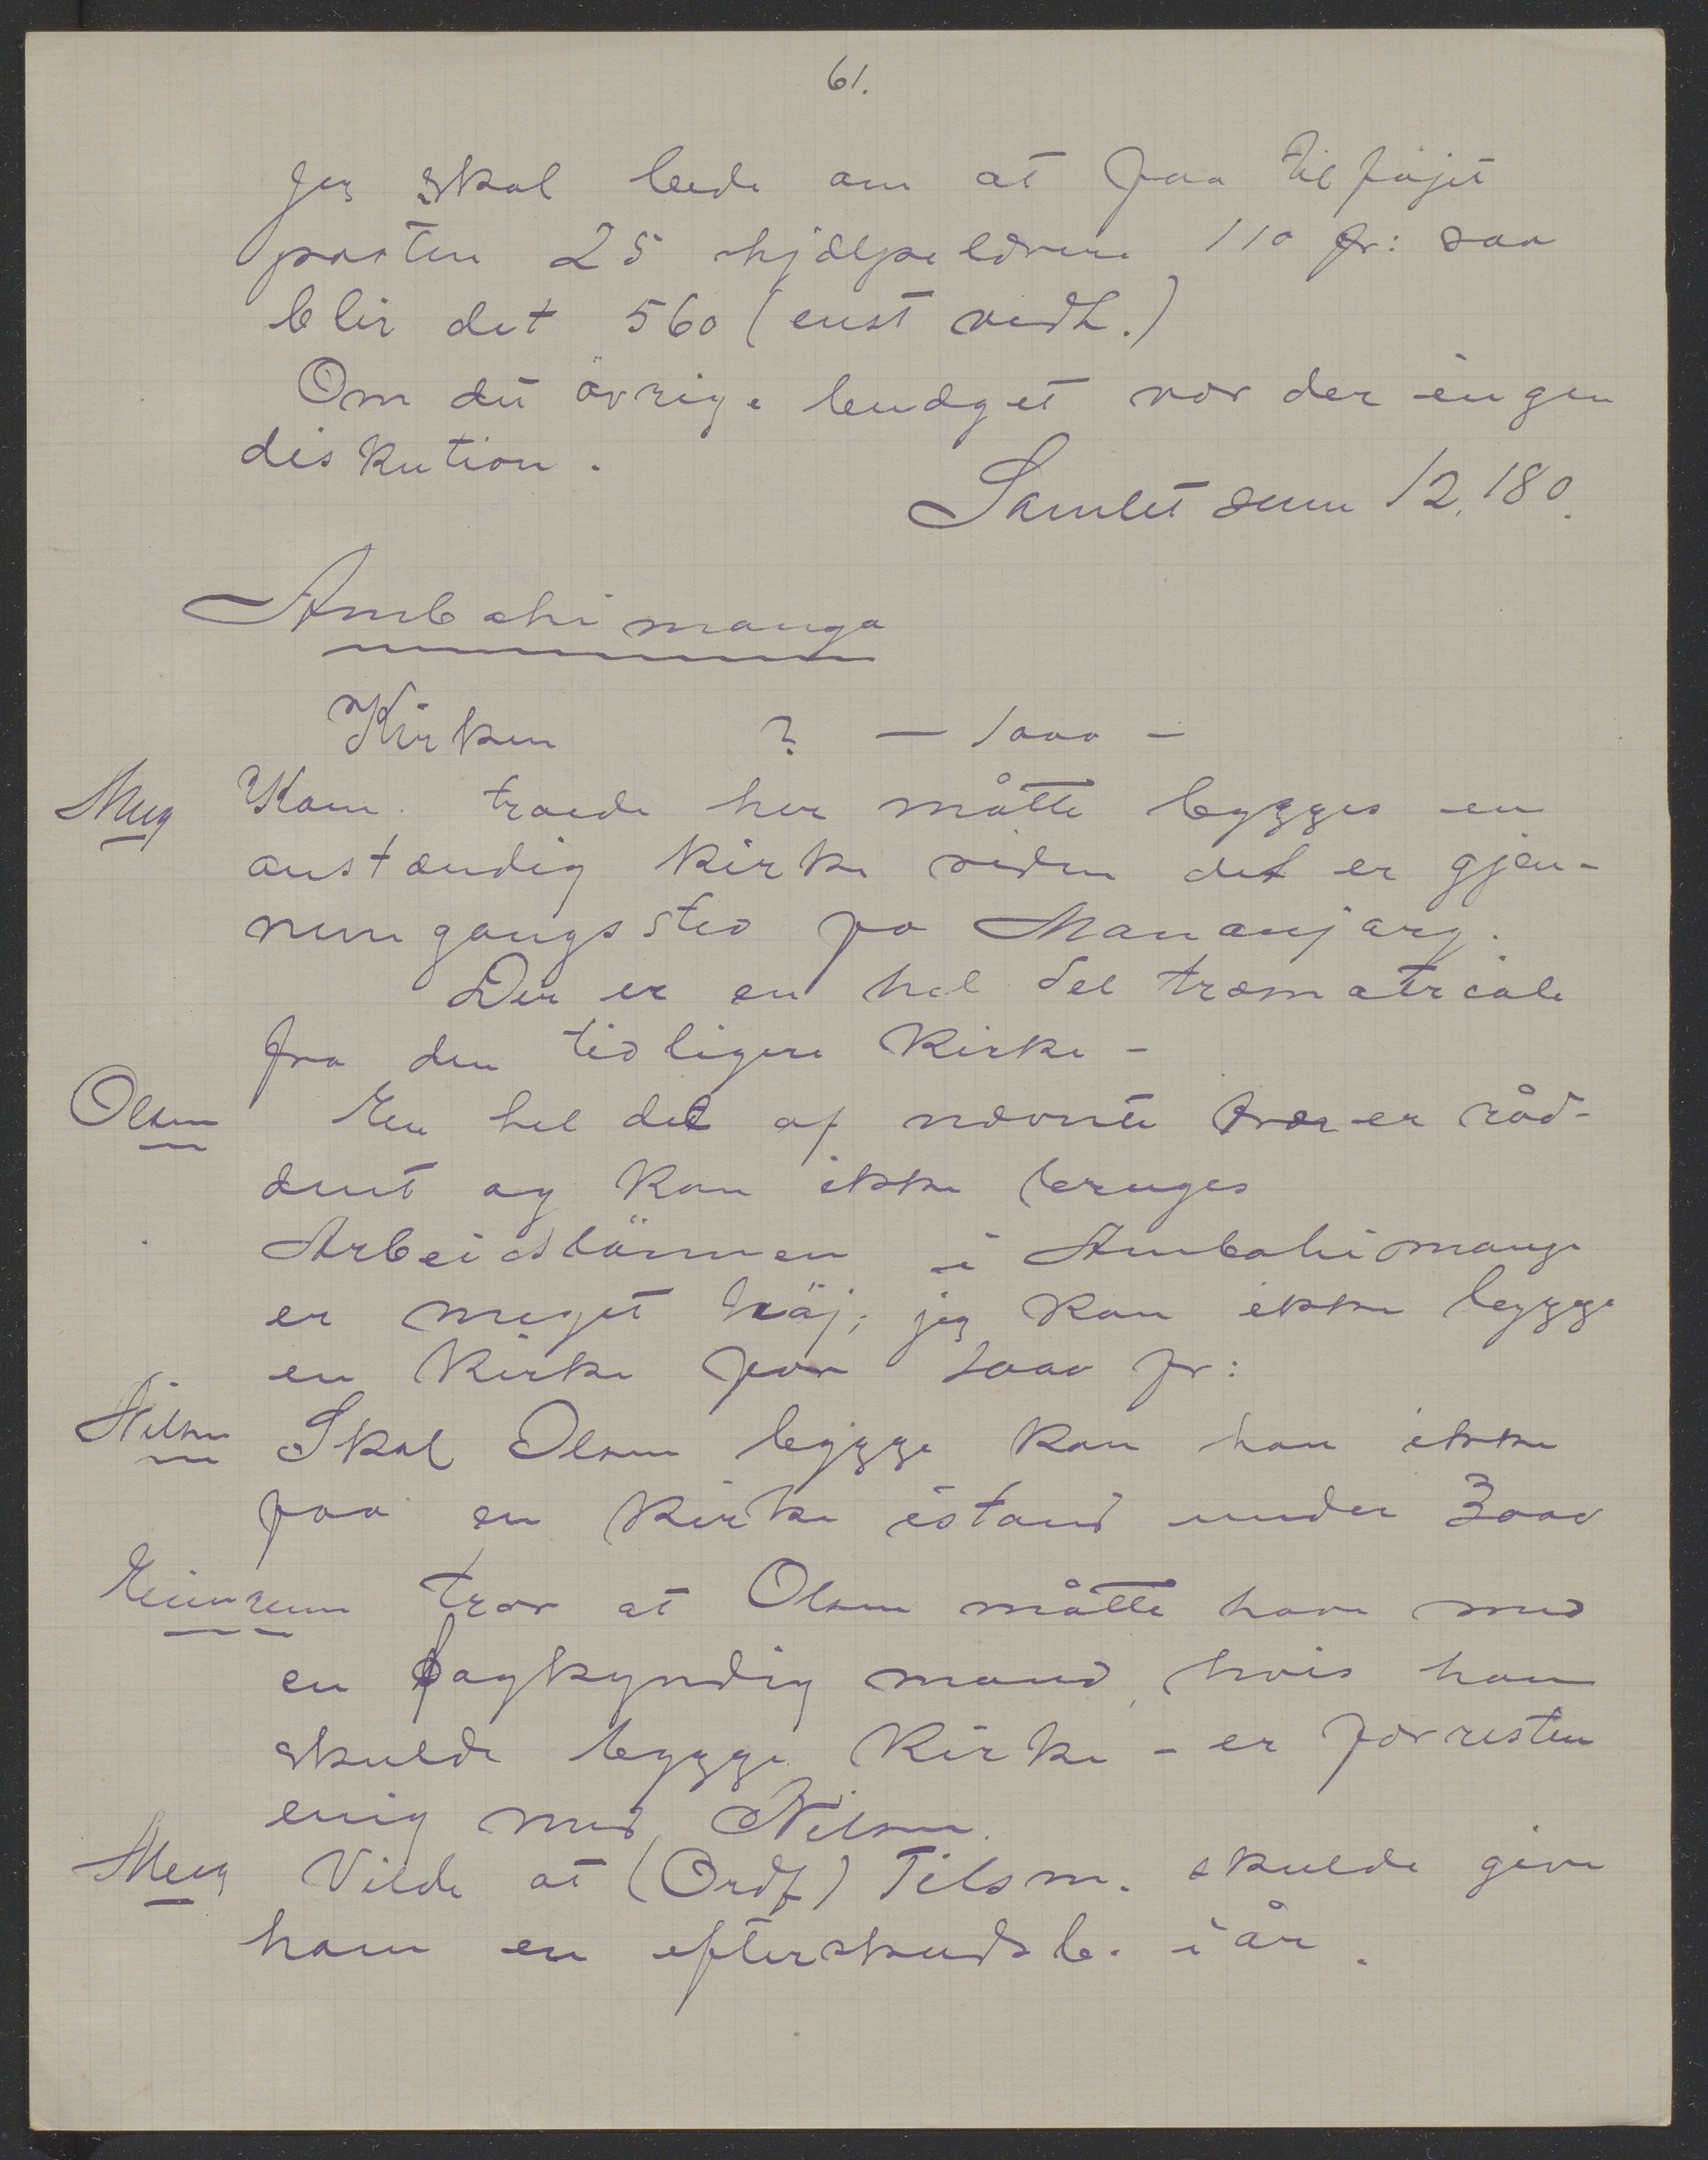 61.
Jeg skal bede om at faa tilföjet
posten 25 hjælpelærere 110 fr: saa
blir det 560 (enst vedt.)
Om det övrige budget var der ingen
diskution.
Samlet sum 12.180.
Ambohimanga
Kirken ? — 1000 —
Meeg Kom. troede her måtte bygges en
anstændig kirke siden det er gjen-
nemgangssted fra Mananjary.
Der er en hel del træmatriale
fra den tidligere Kirke -
Olsen En hel del af nævnte træ er råd-
dent og kan ikke bruges
Arbeidslönnen i Ambohimanga
er meget höj; jeg kan ikke bygge
en Kirke for 1000 fr:
Nilsen Skal Olsen bygge kan han ikke
faa en kirke istand under 3000
tror at Olsen måtte have med
en fagkyndig mand, hvis han
skulde bygge Kirke - er forresten
enig med Nilsen.
Meeg Vilde at (Ordf) Tilsm. skulde give
ham en efterskudsb. i år.